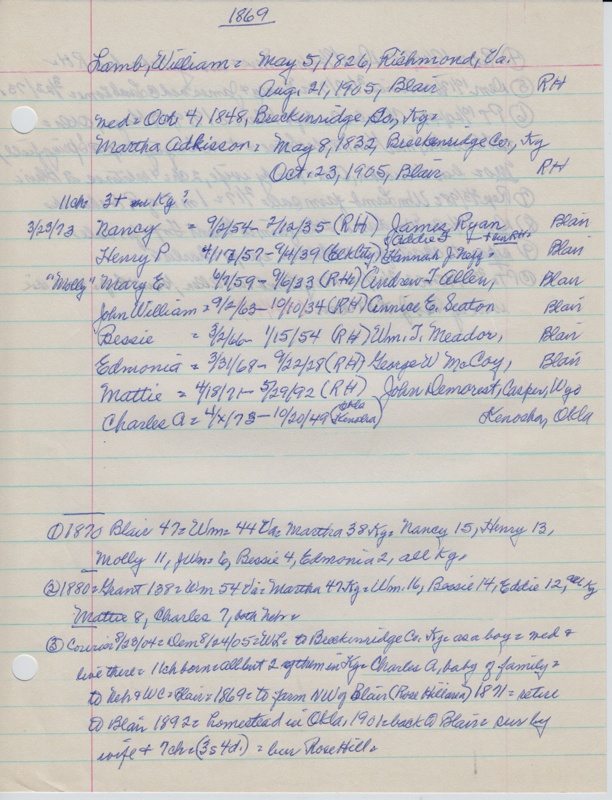 1869
Lamb, William = May 5, 1826, Richmond, Va.
Aug. 21, 1905, Blair RH
med = Oct 4, 1848, Breckinridge Co, Ky =
Martha Adkisson = May 8, 1832, Breckenridge Co., Ky
Oct. 23, 1905, Blair RH
11 ch 3+ Ky ?
3/23/73 Nancy = 9/2/54 - 2/12/35 (RH) James Ryan Blair
Henry P 4/17/57 - 9/4/39 (Elk City) Addie S Hannah J. Blair
"Molly" Mary E 4/7/59 - 9/6/33 (RH) Andrew T Allen, Blair
John William = 9/2/63 - 10/10/34 (RH) Annice E. Seaton Blair
Bessie = 3/2/66 - 1/15/54 (RH) Wm. T. Meador, Blair
Edmonia = 3/31/68 - 9/22/28 (RH) George W McCoy, Blair
Mattie = 4/18/71 - 5/29/92 (RH) John Demorest, Casper, Wyo
Charles A = 4/x/73 - 10/20/49 (Okla) Kenosha, Okla
① 1870 Blair 47 = Wm = 44 Va = Martha 38 Ky = Nancy 15, Henry 13,
Molly 11, J Wm = 6, Bessie 4, Edmonia 2, all Ky,
② 1880 = Grant 138 = Wm 54 Va = Martha 47 Ky = Wm. 16, Bessie 14, Eddie 12, all Ky
Mattie 8, Charles 7, both Neb =
③ Courier 8/29/04 = Dem 8/24/05 = WL = to Breckinridge Co, Ky = as a boy = med &
live there = 11 ch born = all but 2 of them in Ky = Charles A, baby of family =
to Neb & WC = Blair = 1869 = to farm NW of Blair (Rose Hill area) 1871 = retire
to Blair 1892 = homestead in Okla. 1901 = back to Blair = sur by
wife + 7 ch = (3s 4d.) = bur Rose Hill =